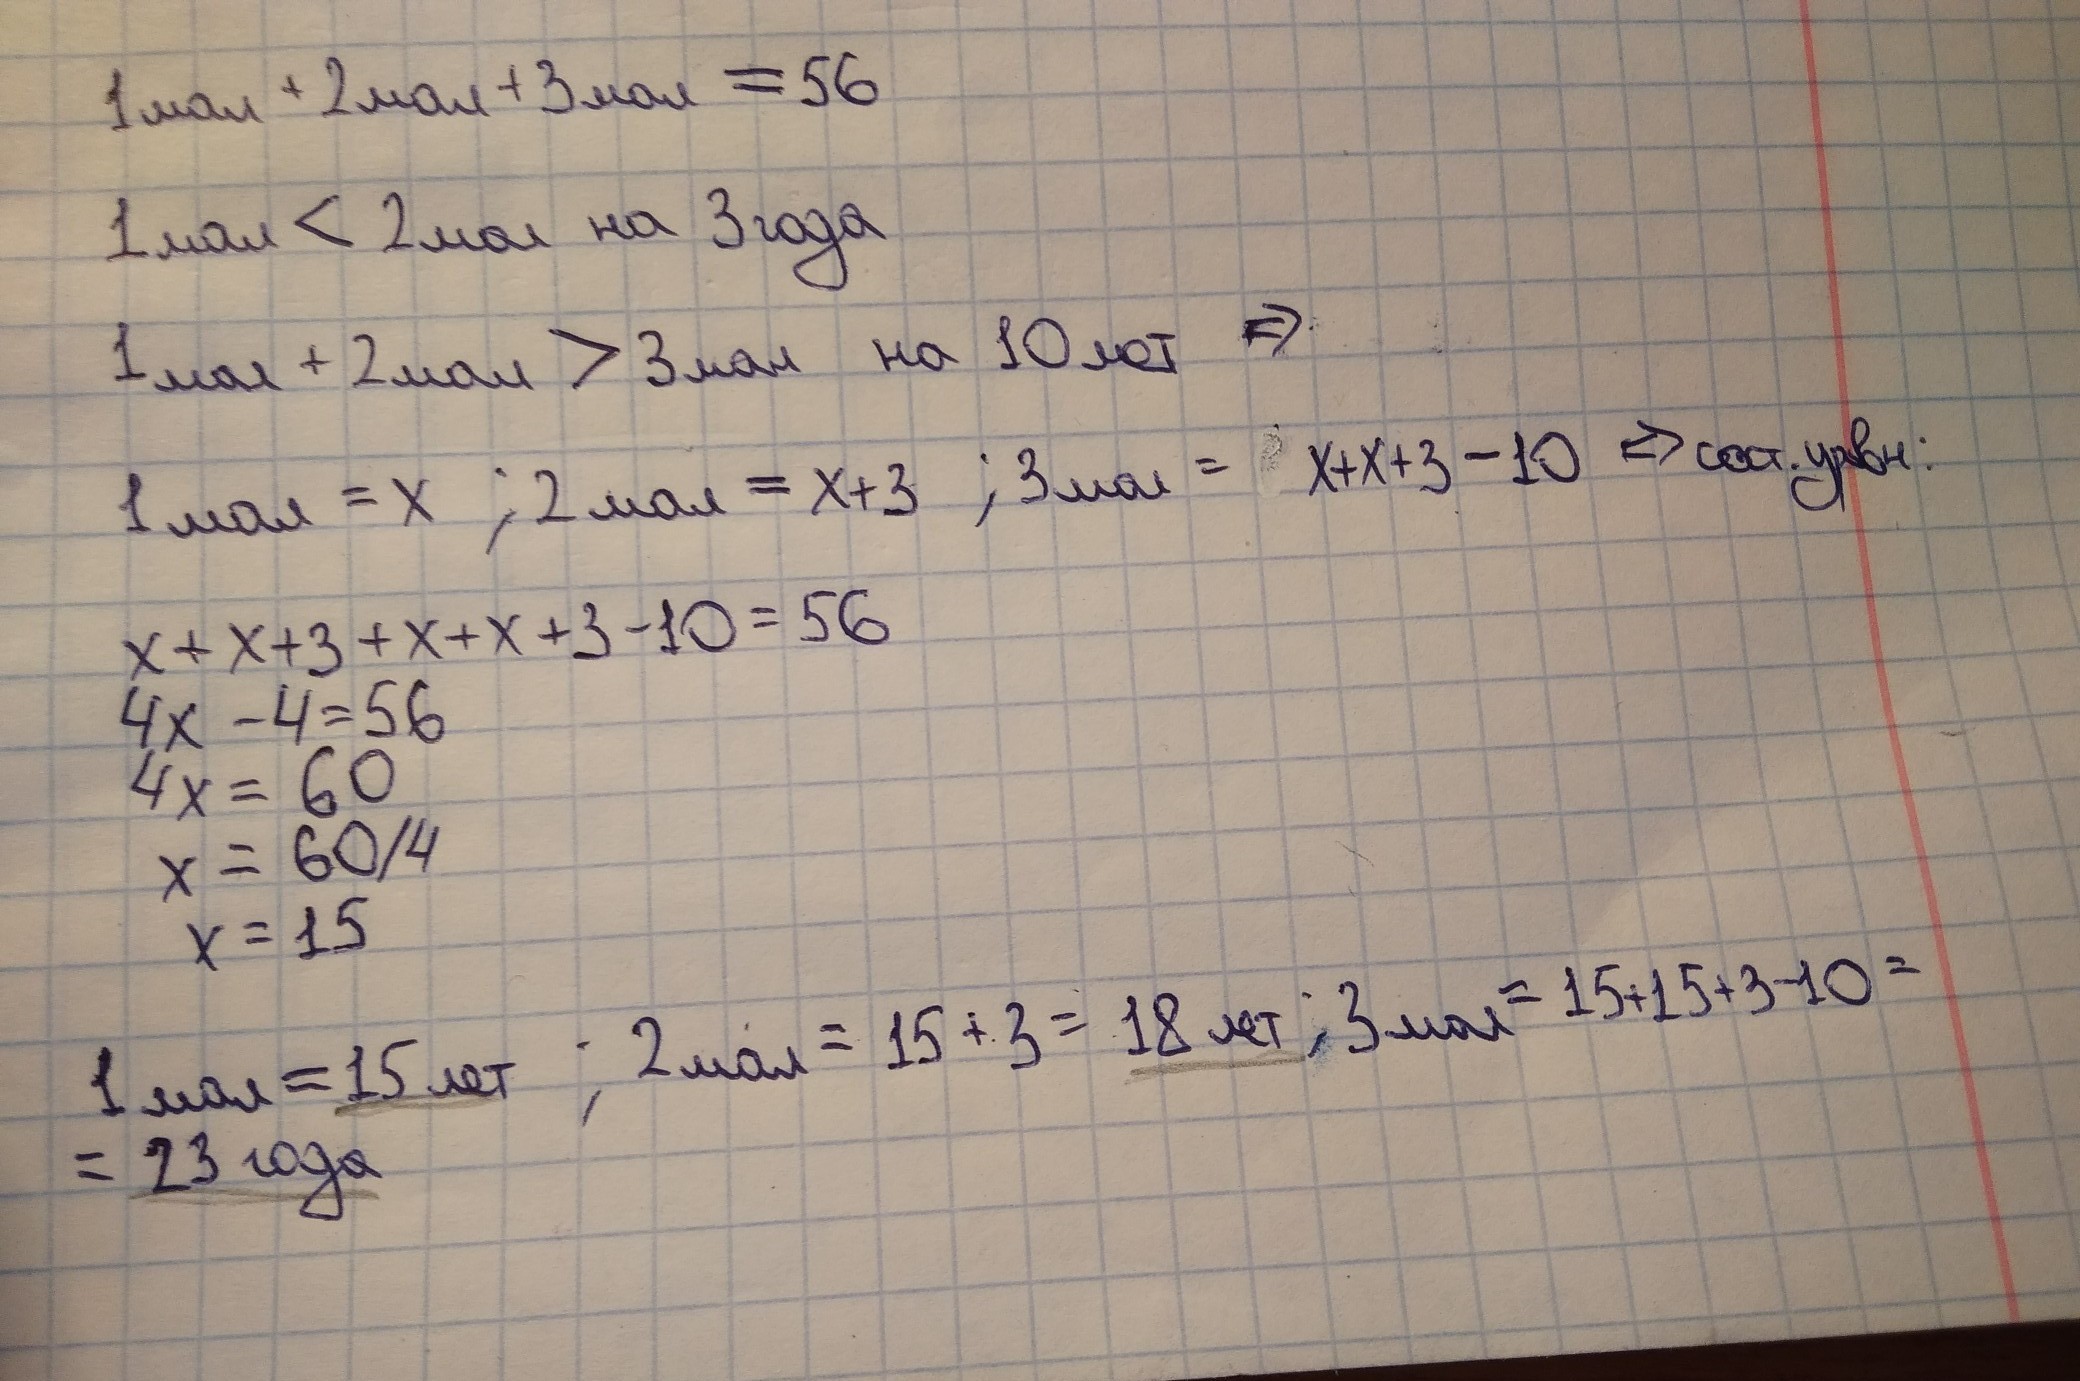 1мал + 2мал + 3мал = 56
1мал < 2мал на 3 года
1мал + 2мал > 3мал на 10 лет ⇒
1мал = x ; 2мал = x+3 ; 3мал = x+x+3-10 ⇒ сост. уравн:
x + x + 3 + x + x + 3 - 10 = 56
4x - 4 = 56
4x = 60
x = 60/4
x = 15
1мал = 15 лет ; 2мал = 15 + 3 = 18 лет ; 3мал = 15+15+3-10 =
= 23 года